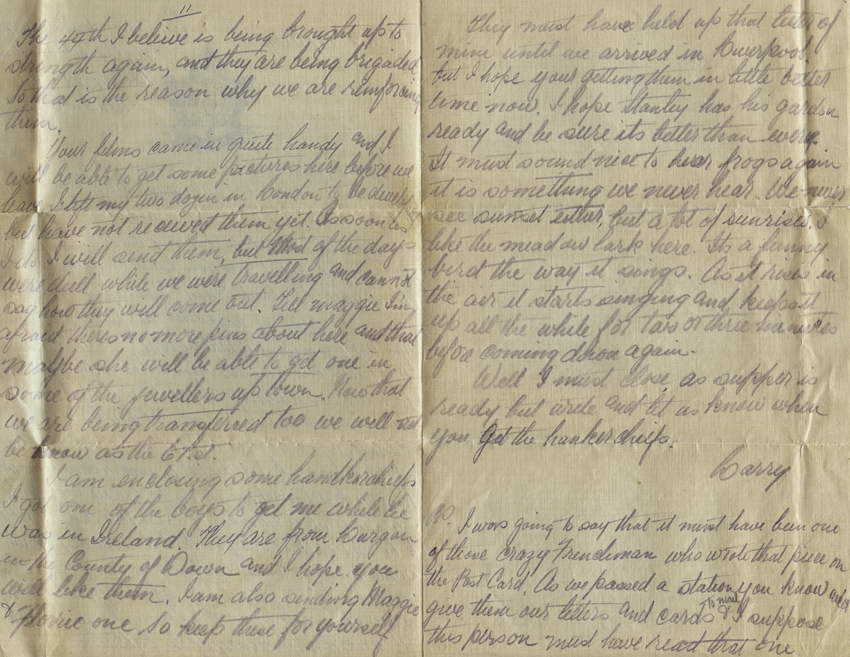 11
The 44th I believe is being brought up to
strength again, and they are being brigaded
so that is the reason why we are reinforcing
them.
Your films came in quite handy and I
will be able to get some pictures here before we
leave. I left my two dozen in London to be
but have not received them yet. As soon as
I do I will send them, but Most of the days
were dull while we were travelling and cannot
say how they will come out. Tell maggie I'm
afraid theres no more pins about here and that
maybe she will be able to get one in
some of the jewellers up town. Now that
we are being transferred too we will not
be know as the 61st.
I am enclosing some handkerchiefs
I got one of the boys to get me while he
was in Ireland. They are from Lurgan
in the County of Down and I hope you
will like them. I am also sending Maggie
& Florrie one so keep these for yourself
They must have held up that letter of
mine until we arrived in Liverpool.
but I hope your getting them in little better
time now. I hope Stanley has his garden
ready and be sure its better than ever.
It must sound nice to hear frogs again
it is something we never hear. We never
see sunset either, but a lot of sunrises. I
like the meadow lark here. Its a funny
bird the way it sings. As it rises in
the air it starts singing and keeps it
up all the while for two or three minutes
before coming down again.
Well I must close as supper is
ready but write and let us know when
you get the hankerchiefs.
Larry
P.S. I was going to say that it must have been one
of those crazy Frenchman who wrote that piece on
the Post Card. As we passed a station you know we
give them our letters and cards to mail & I suppose
this person must have read that one